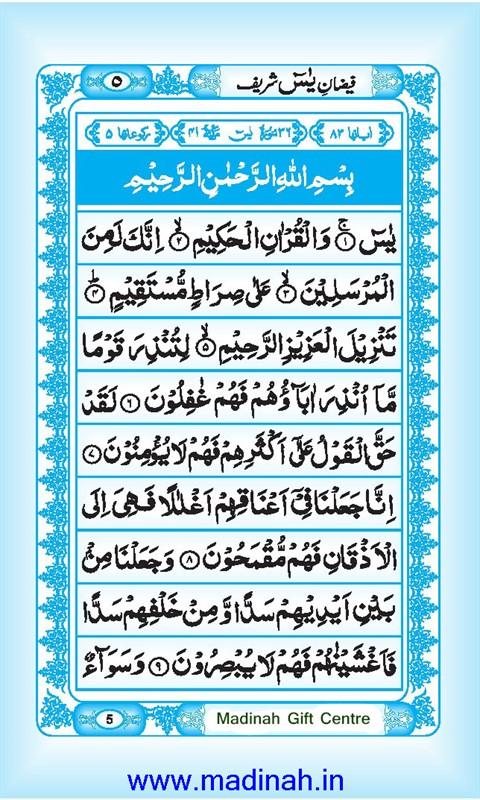 فیضانِ یٰسٓ شریف
۵
اٰیاتها ۸۳
۳۶ سورۃ یٰسٓ مکیۃ ۴۱
رکوعاتها ۵
بِسْمِ اللهِ الرَّحْمٰنِ الرَّحِیْمِ
یٰسٓ ۚ﴿۱﴾ وَالْقُرْاٰنِ الْحَكِیْمِ ۙ﴿۲﴾ اِنَّكَ لَمِنَ
الْمُرْسَلِیْنَ ۙ﴿۳﴾ عَلٰی صِرَاطٍ مُّسْتَقِیْمٍ ؕ﴿۴﴾
تَنْزِیْلَ الْعَزِیْزِ الرَّحِیْمِ ۙ﴿۵﴾ لِتُنْذِرَ قَوْمًا
مَّاۤ اُنْذِرَ اٰبَآؤُهُمْ فَهُمْ غٰفِلُوْنَ ﴿۶﴾ لَقَدْ
حَقَّ الْقَوْلُ عَلٰۤی اَكْثَرِهِمْ فَهُمْ لَا یُؤْمِنُوْنَ ﴿۷﴾
اِنَّا جَعَلْنَا فِیْۤ اَعْنَاقِهِمْ اَغْلٰلًا فَهِیَ اِلَی
الْاَذْقَانِ فَهُمْ مُّقْمَحُوْنَ ﴿۸﴾ وَ جَعَلْنَا مِنْۢ
بَیْنِ اَیْدِیْهِمْ سَدًّا وَّ مِنْ خَلْفِهِمْ سَدًّا
فَاَغْشَیْنٰهُمْ فَهُمْ لَا یُبْصِرُوْنَ ﴿۹﴾ وَ سَوَآءٌ
5
Madinah Gift Centre
www.madinah.in